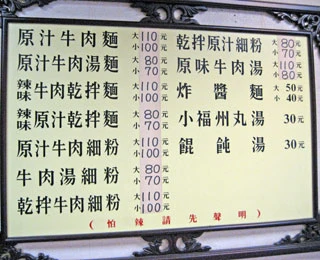 原汁牛肉麵 大110元 小100元
原汁牛肉湯麵 大80元 小70元
辣味牛肉乾拌麵 大110元 小100元
辣味原汁乾拌麵 大80元 小70元
原汁牛肉細粉 大110元 小100元
牛肉湯細粉 大80元 小70元
乾拌牛肉細粉 大110元 小100元
乾拌原汁細粉 大80元 小70元
原味牛肉湯 大110元 小80元
炸醬麵 大50元 小40元
小福州丸湯 30元
餛飩湯 30元
(怕辣請先聲明)